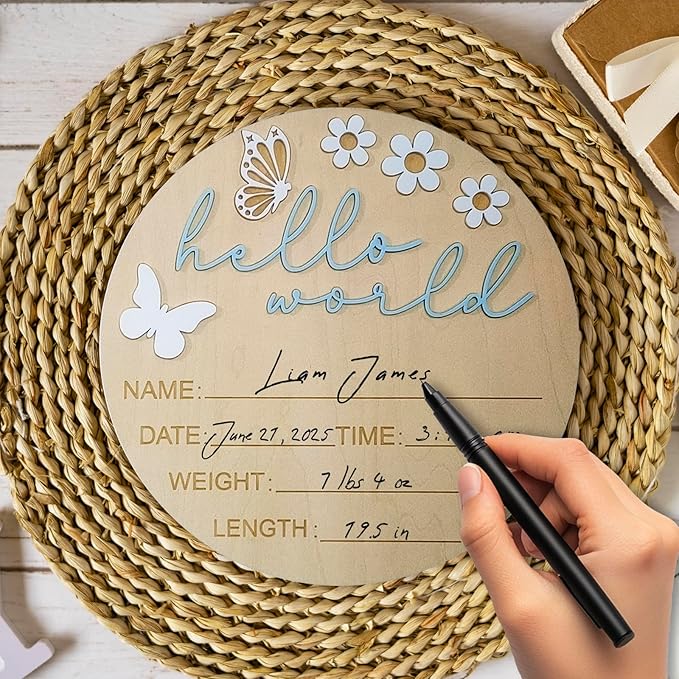 hello
world
NAME: Liam James
DATE: June 27, 2025 TIME: 3:
WEIGHT: 7 lbs 4 oz
LENGTH: 19.5 in